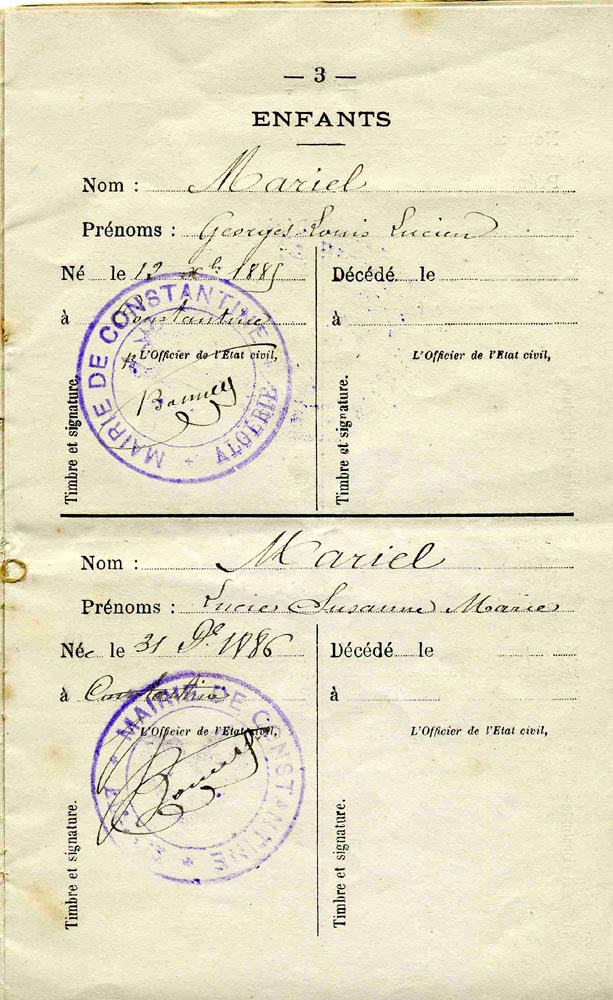 — 3 —
ENFANTS
Nom : Mariel
Prénoms : Georges Louis Lucien
Né le 12 xbre 1885
à Constantine
L'Officier de l'Etat civil,
Timbre et signature.
MAIRIE DE CONSTANTINE
ALGÉRIE
Décédé le
à
L'Officier de l'Etat civil,
Timbre et signature.
Nom : Mariel
Prénoms : Lucie Susanne Marie
Née le 31 Xbre 1886
à Constantine
L'Officier de l'Etat civil,
Timbre et signature.
MAIRIE DE CONSTANTINE
Décédé le
à
L'Officier de l'Etat civil,
Timbre et signature.